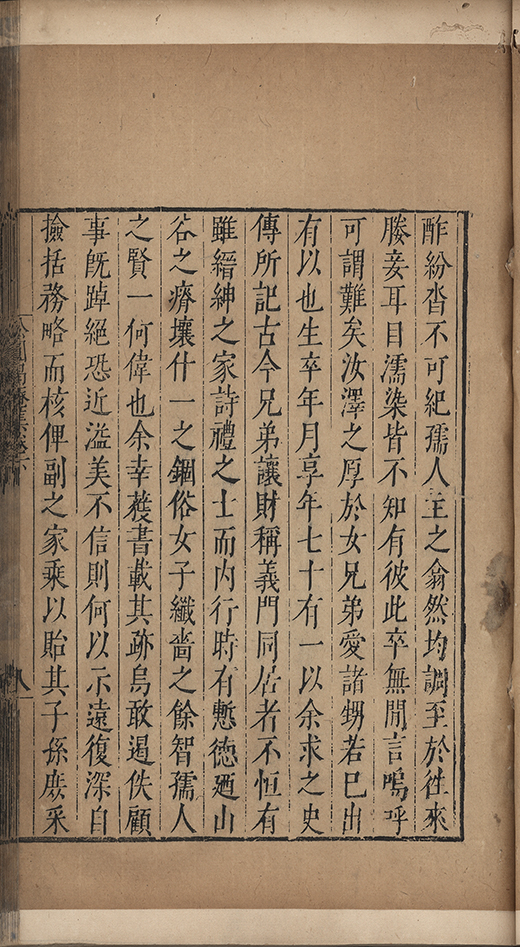 酢紛沓不可紀孺人主之翕然均調至於徃來
媵妾耳目濡染皆不知有彼此卒無間言嗚呼
可謂難矣汝澤之厚於女兄弟愛諸甥若巳出
有以也生卒年月享年七十有一以余求之史
傳所記古今兄弟讓財稱義門同居者不恒有
雖縉紳之家詩禮之士而内行時有慙德廼山
谷之瘠壤什一之錮俗女子纖嗇之餘智孺人
之賢一何偉也余幸蒦書載其跡烏敢遏佚顧
事旣踔絕恐近溢美不信則何以示遠復深自
撿括務略而核俾副之家乘以貽其子孫庻采